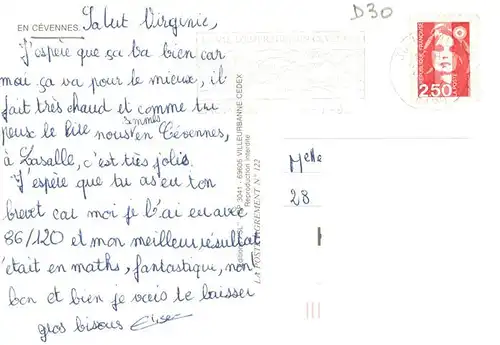 D30
EN CÉVENNES
Salut Virginie,
J'espère que ça va bien car
moi ça va pour le mieux, il
fait très chaud et comme tu
peux le lire nous sommes en Cévennes,
à Lasalle, c'est très jolis.
J'espère que tu as eu ton
brevet car moi je l'ai eu avec
86/120 et mon meilleur résultat
était en maths, fantastique, non
bon et bien je vais te laisser
gros bisous Elise
3041 - 69606 VILLEURBANNE CEDEX
Reproduction interdite
N° 122
RÉPUBLIQUE FRANÇAISE
2,50
LA POSTE
Melle
28